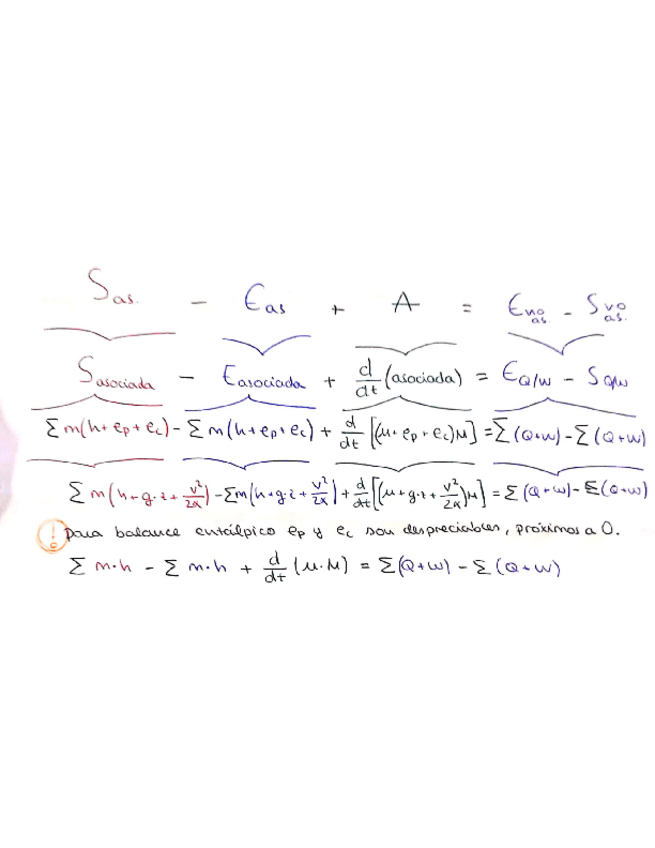 S as. - E as + A = E no as. - S no as.
S asociada - E asociada + d/dt (asociada) = E Q/w - S Q/w
Σ m(h + ep + ec) - Σ m(h + ep + ec) + d/dt [(u + ep + ec)M] = Σ (Q+w) - Σ (Q+w)
Σ m(h + g·z + v²/2α) - Σm(h + g·z + v²/2α) + d/dt [(u + g·z + v²/2α)M] = Σ (Q+w) - Σ(Q+w)
! para balance entálpico ep y ec son despreciables, próximos a 0.
Σ m·h - Σ m·h + d/dt (u·M) = Σ(Q+w) - Σ (Q+w)